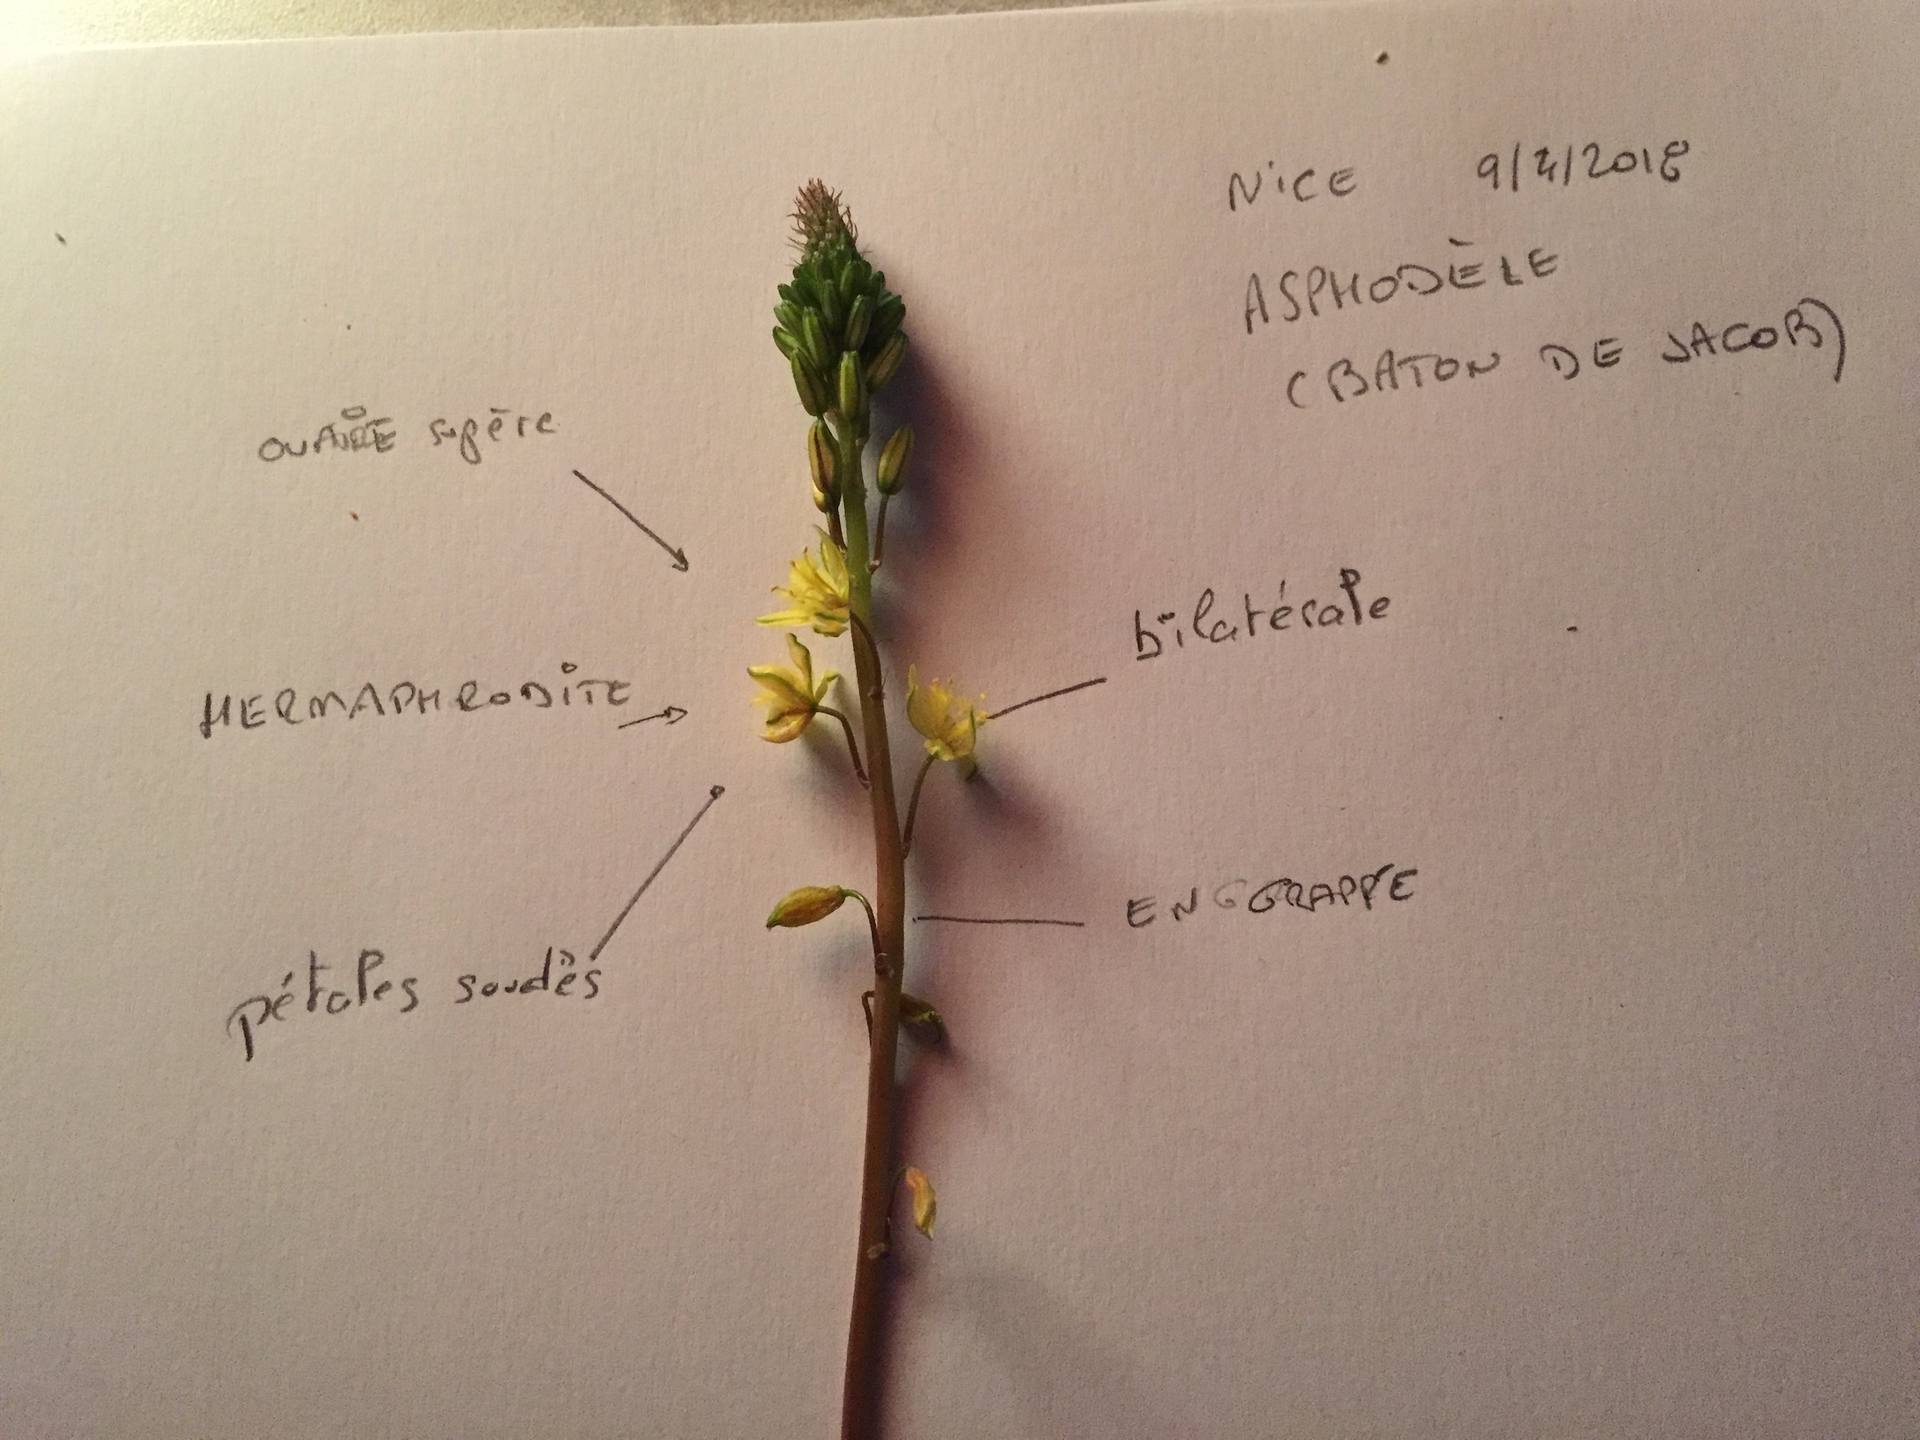 NICE 9/4/2018
ASPHODÈLE
(BATON DE JACOB)
OVAIRE supère
bilatérale
HERMAPHRODITE
EN GGRAPPE
pétales soudés